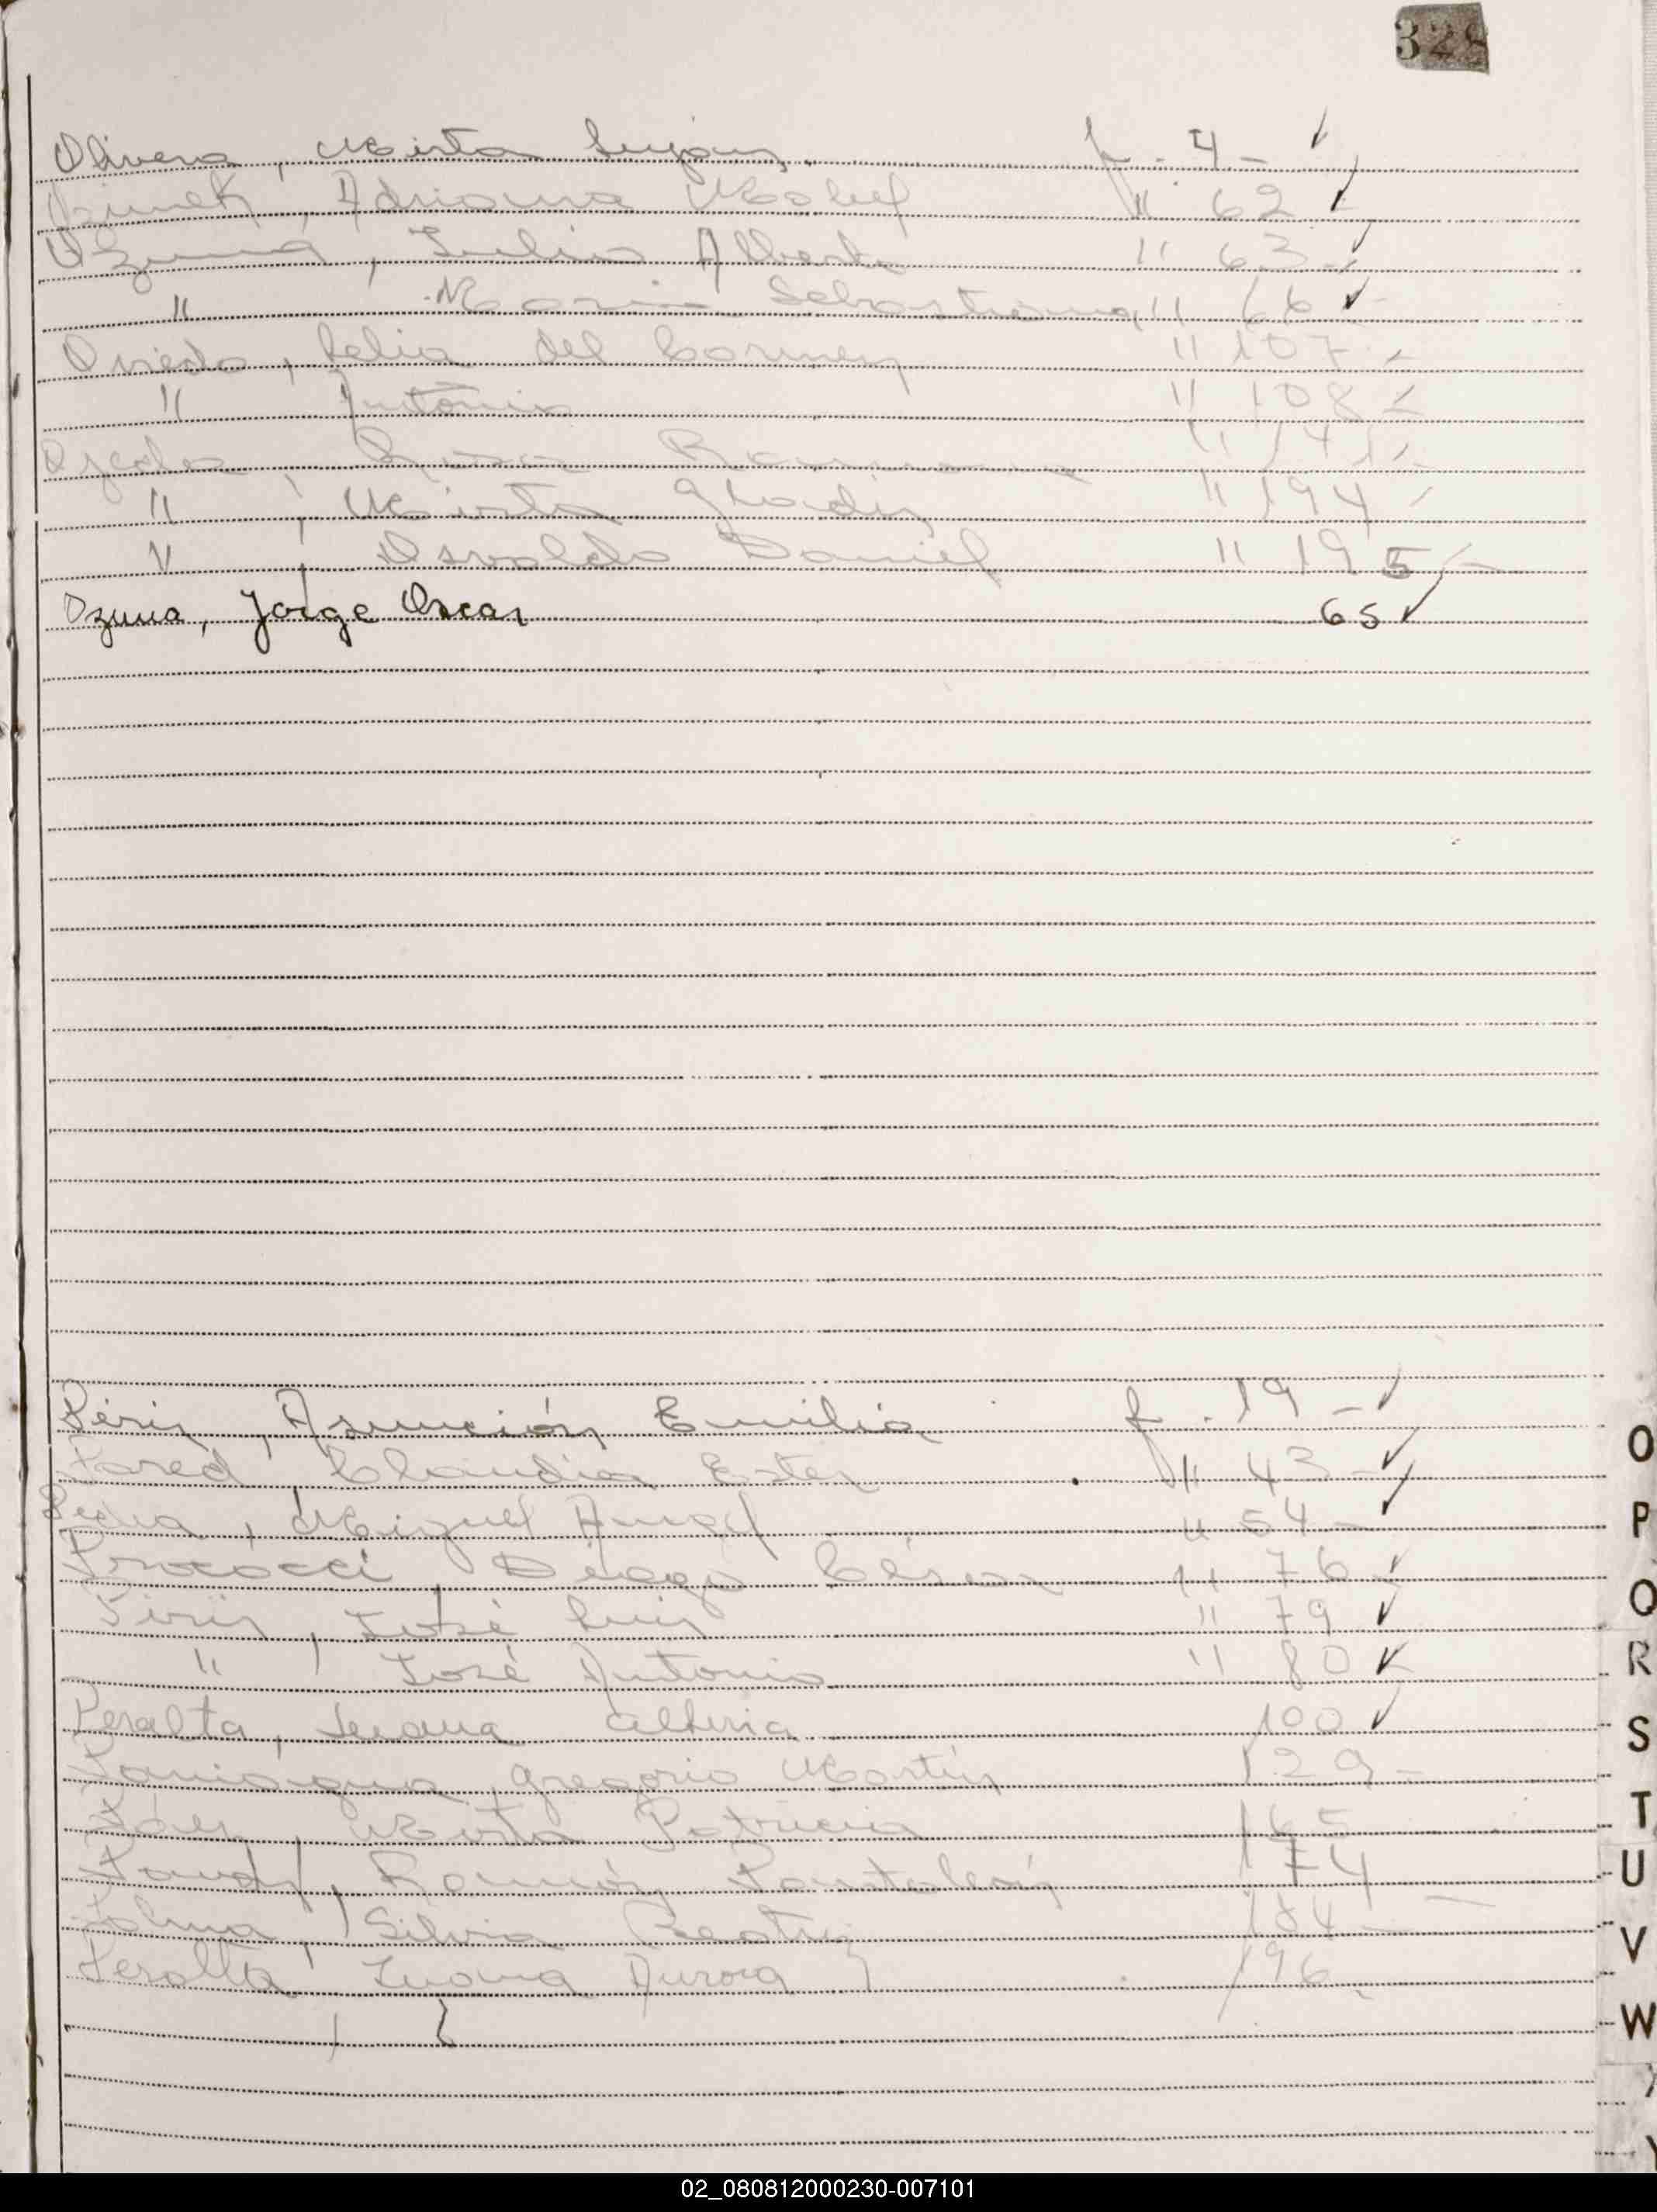 328
Olivera, Mirta Luján f. 4 -
Adriana Mabel " 62 -
Ozuna, Julio Alberto " 63 -
" María Sebastiana " 66 -
Oviedo, Celia del Carmen " 107 -
" Antonio " 108 -
Ojeda, Rosa Ramona " 141 -
" , Mirta Gladis " 194 -
" , Osvaldo Daniel " 195 -
Ozuna, Jorge Oscar 65
Píriz, Asunción Emilia f. 19 -
Pared Claudia Ester " 43 -
, Miguel Angel " 54 -
Prococci, Diego César " 76 -
Piriz, José Luis " 79
" , José Antonio " 80
Peralta, Juana 100
Paniagua, Gregorio Martín 129 -
Páez, Mirta Patricia 165
, Ramón Pantaleón 174
Palma, Silvia Beatriz 184 -
Peralta, Juana Aurora 196
O
P
Q
R
S
T
U
V
W
02_080812000230-007101